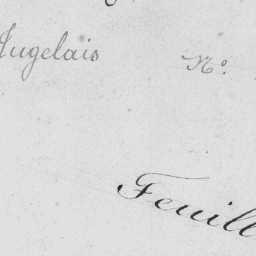 Jugelais Nº
Feuill